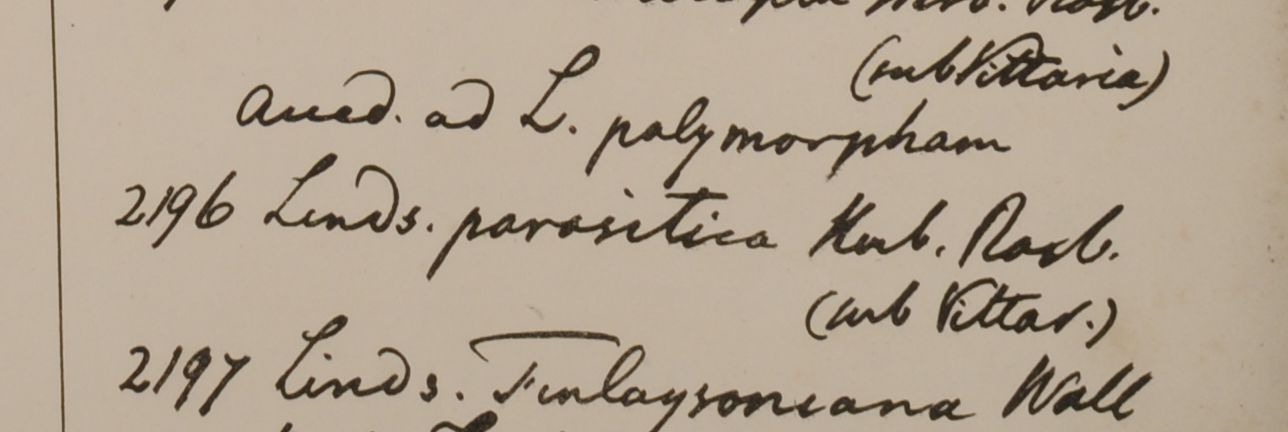 Herb. Roxb.
(sub Vittaria)
aued. ad L. polymorpham
2196 Linds. parasitica Herb. Roxb.
(sub Vittar.)
2197 Linds. Finlaysoniana Wall